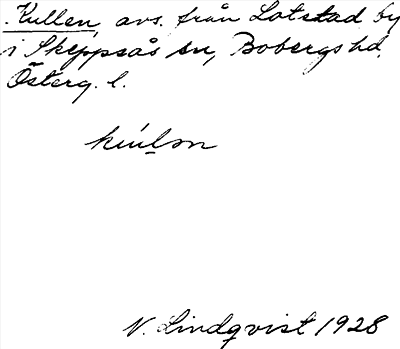 Kullen, avs. från Lotstad by
i Skeppsås sn, Bobergs hd.
Österg. l.
N. Lindqvist 1928